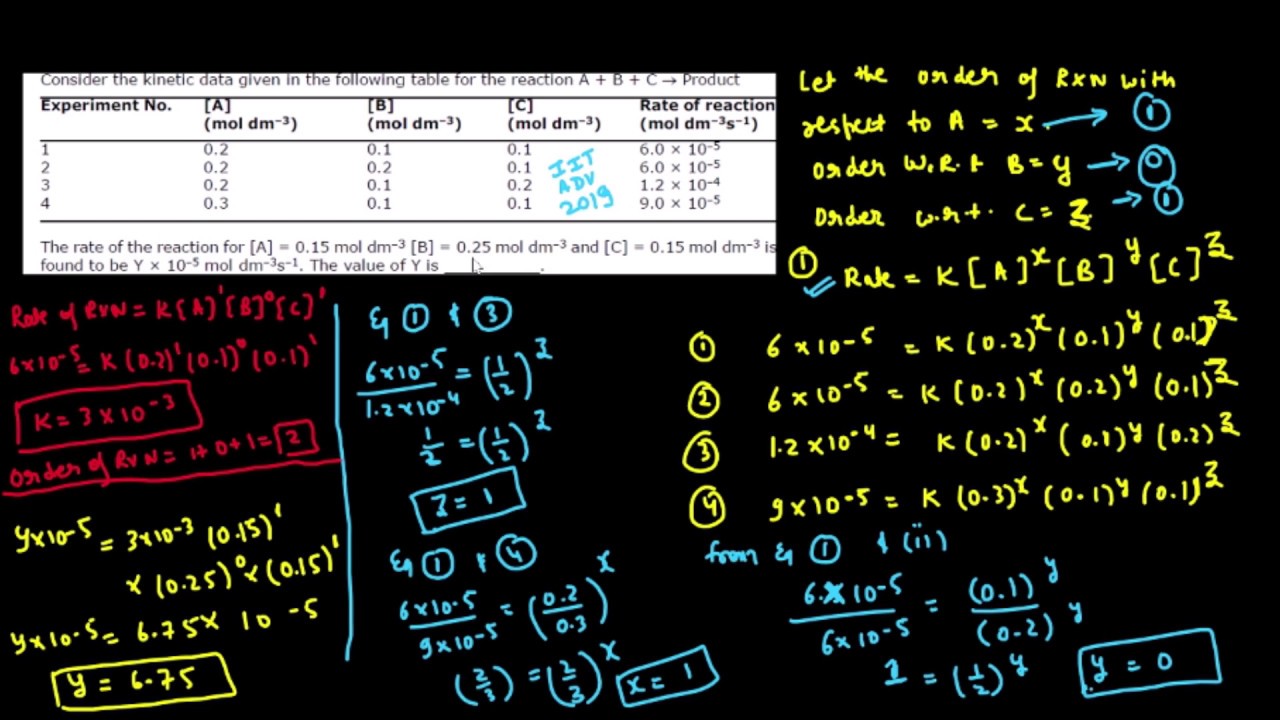 Consider the kinetic data given in the following table for the reaction A + B + C → Product
Experiment No. [A] [B] [C] Rate of reaction
(mol dm⁻³) (mol dm⁻³) (mol dm⁻³) (mol dm⁻³s⁻¹)
1 0.2 0.1 0.1 6.0 × 10⁻⁵
2 0.2 0.2 0.1 6.0 × 10⁻⁵
3 0.2 0.1 0.2 1.2 × 10⁻⁴
4 0.3 0.1 0.1 9.0 × 10⁻⁵
IIT
ADV
2019
The rate of the reaction for [A] = 0.15 mol dm⁻³ [B] = 0.25 mol dm⁻³ and [C] = 0.15 mol dm⁻³ is
found to be Y × 10⁻⁵ mol dm⁻³s⁻¹. The value of Y is ________.
Let the order of RXN with
respect to A = x. → 1
order W.R.t B = y → 0
order w.r.t. C = z → 1
① Rate = K[A]ˣ[B]ʸ[C]ᶻ
① 6 × 10⁻⁵ = K (0.2)ˣ (0.1)ʸ (0.1)ᶻ
② 6 × 10⁻⁵ = K (0.2)ˣ (0.2)ʸ (0.1)ᶻ
③ 1.2 × 10⁻⁴ = K (0.2)ˣ (0.1)ʸ (0.2)ᶻ
④ 9 × 10⁻⁵ = K (0.3)ˣ (0.1)ʸ (0.1)ᶻ
from Eq ① & (ii)
6 × 10⁻⁵ / 6 × 10⁻⁵ = (0.1)ʸ / (0.2)ʸ
1 = (1/2)ʸ
y = 0
Eq ① & ③
6×10⁻⁵ / 1.2×10⁻⁴ = (1/2)ᶻ
1/2 = (1/2)ᶻ
z = 1
Eq ① & ④
6×10⁻⁵ / 9×10⁻⁵ = (0.2/0.3)ˣ
(2/3) = (2/3)ˣ
x = 1
Rate of RXN = K[A]¹[B]⁰[C]¹
6×10⁻⁵ = K (0.2)¹ (0.1)⁰ (0.1)¹
K = 3 × 10⁻³
order of RXN = 1+0+1 = 2
Y×10⁻⁵ = 3×10⁻³ (0.15)¹
× (0.25)⁰ × (0.15)¹
Y×10⁻⁵ = 6.75 × 10⁻⁵
Y = 6.75